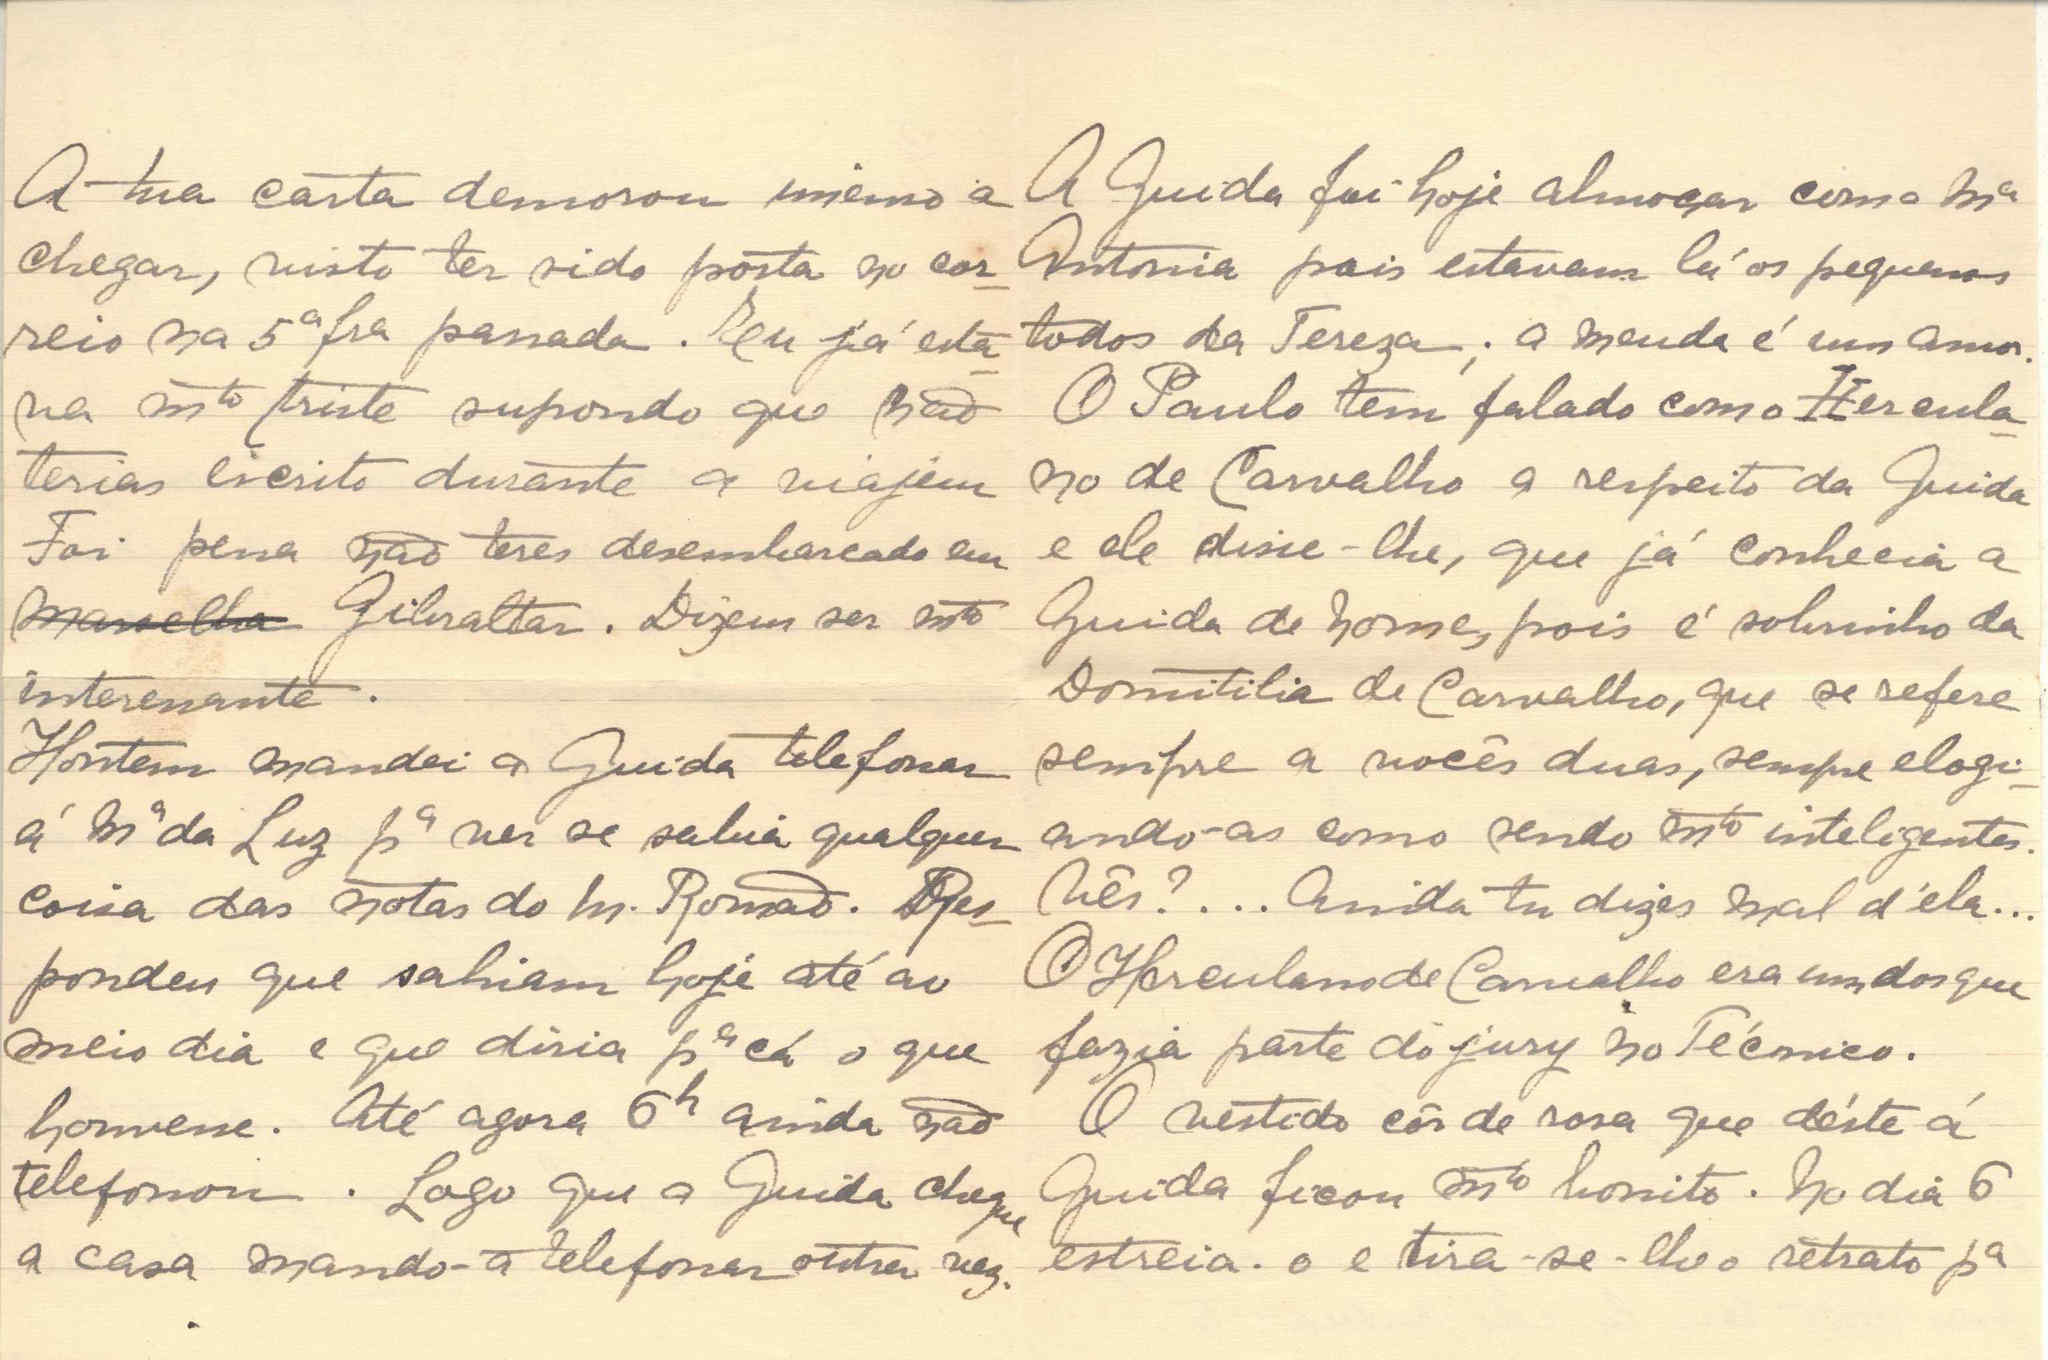 A tua carta demorou imenso a
chegar, visto ter sido posta no cor-
reio na 5ª fra passada. Eu já está-
va mto triste supondo que não
terias escrito durante a viajem
Foi pena não teres desembarcado em
Marselha Gibraltar. Dizem ser mto
interessante.
Hontem mandei a Guida telefonar
á Mª da Luz pª ver se sabia qualquer
coisa das notas do M. Romão. Res-
pondeu que sahiam hoje até ao
meio dia e que diria pª cá o que
houvesse. Até agora 6h ainda não
telefonou. Logo que a Guida chegue
a casa mando-a telefonar outra vez.
A Guida foi hoje almoçar com a Mª
Antonia pois estavam lá os pequenos
todos da Tereza; a meuda é um amor.
O Paulo tem falado com o Hercula-
no de Carvalho a respeito da Guida
e ele disse-lhe, que já conhecia a
Guida de nome, pois é sobrinho da
Domitilia de Carvalho, que se refere
sempre a vocês duas, sempre elogi-
ando-as como sendo mto inteligentes.
Vês?... Ainda tu dizes mal d'éla...
O Herculano de Carvalho era um dos que
fazia parte do jury no Técnico.
O vestido côr de rosa que déste á
Guida ficou mto bonito. No dia 6
estreia-o e tira-se-lhe o retrato pª